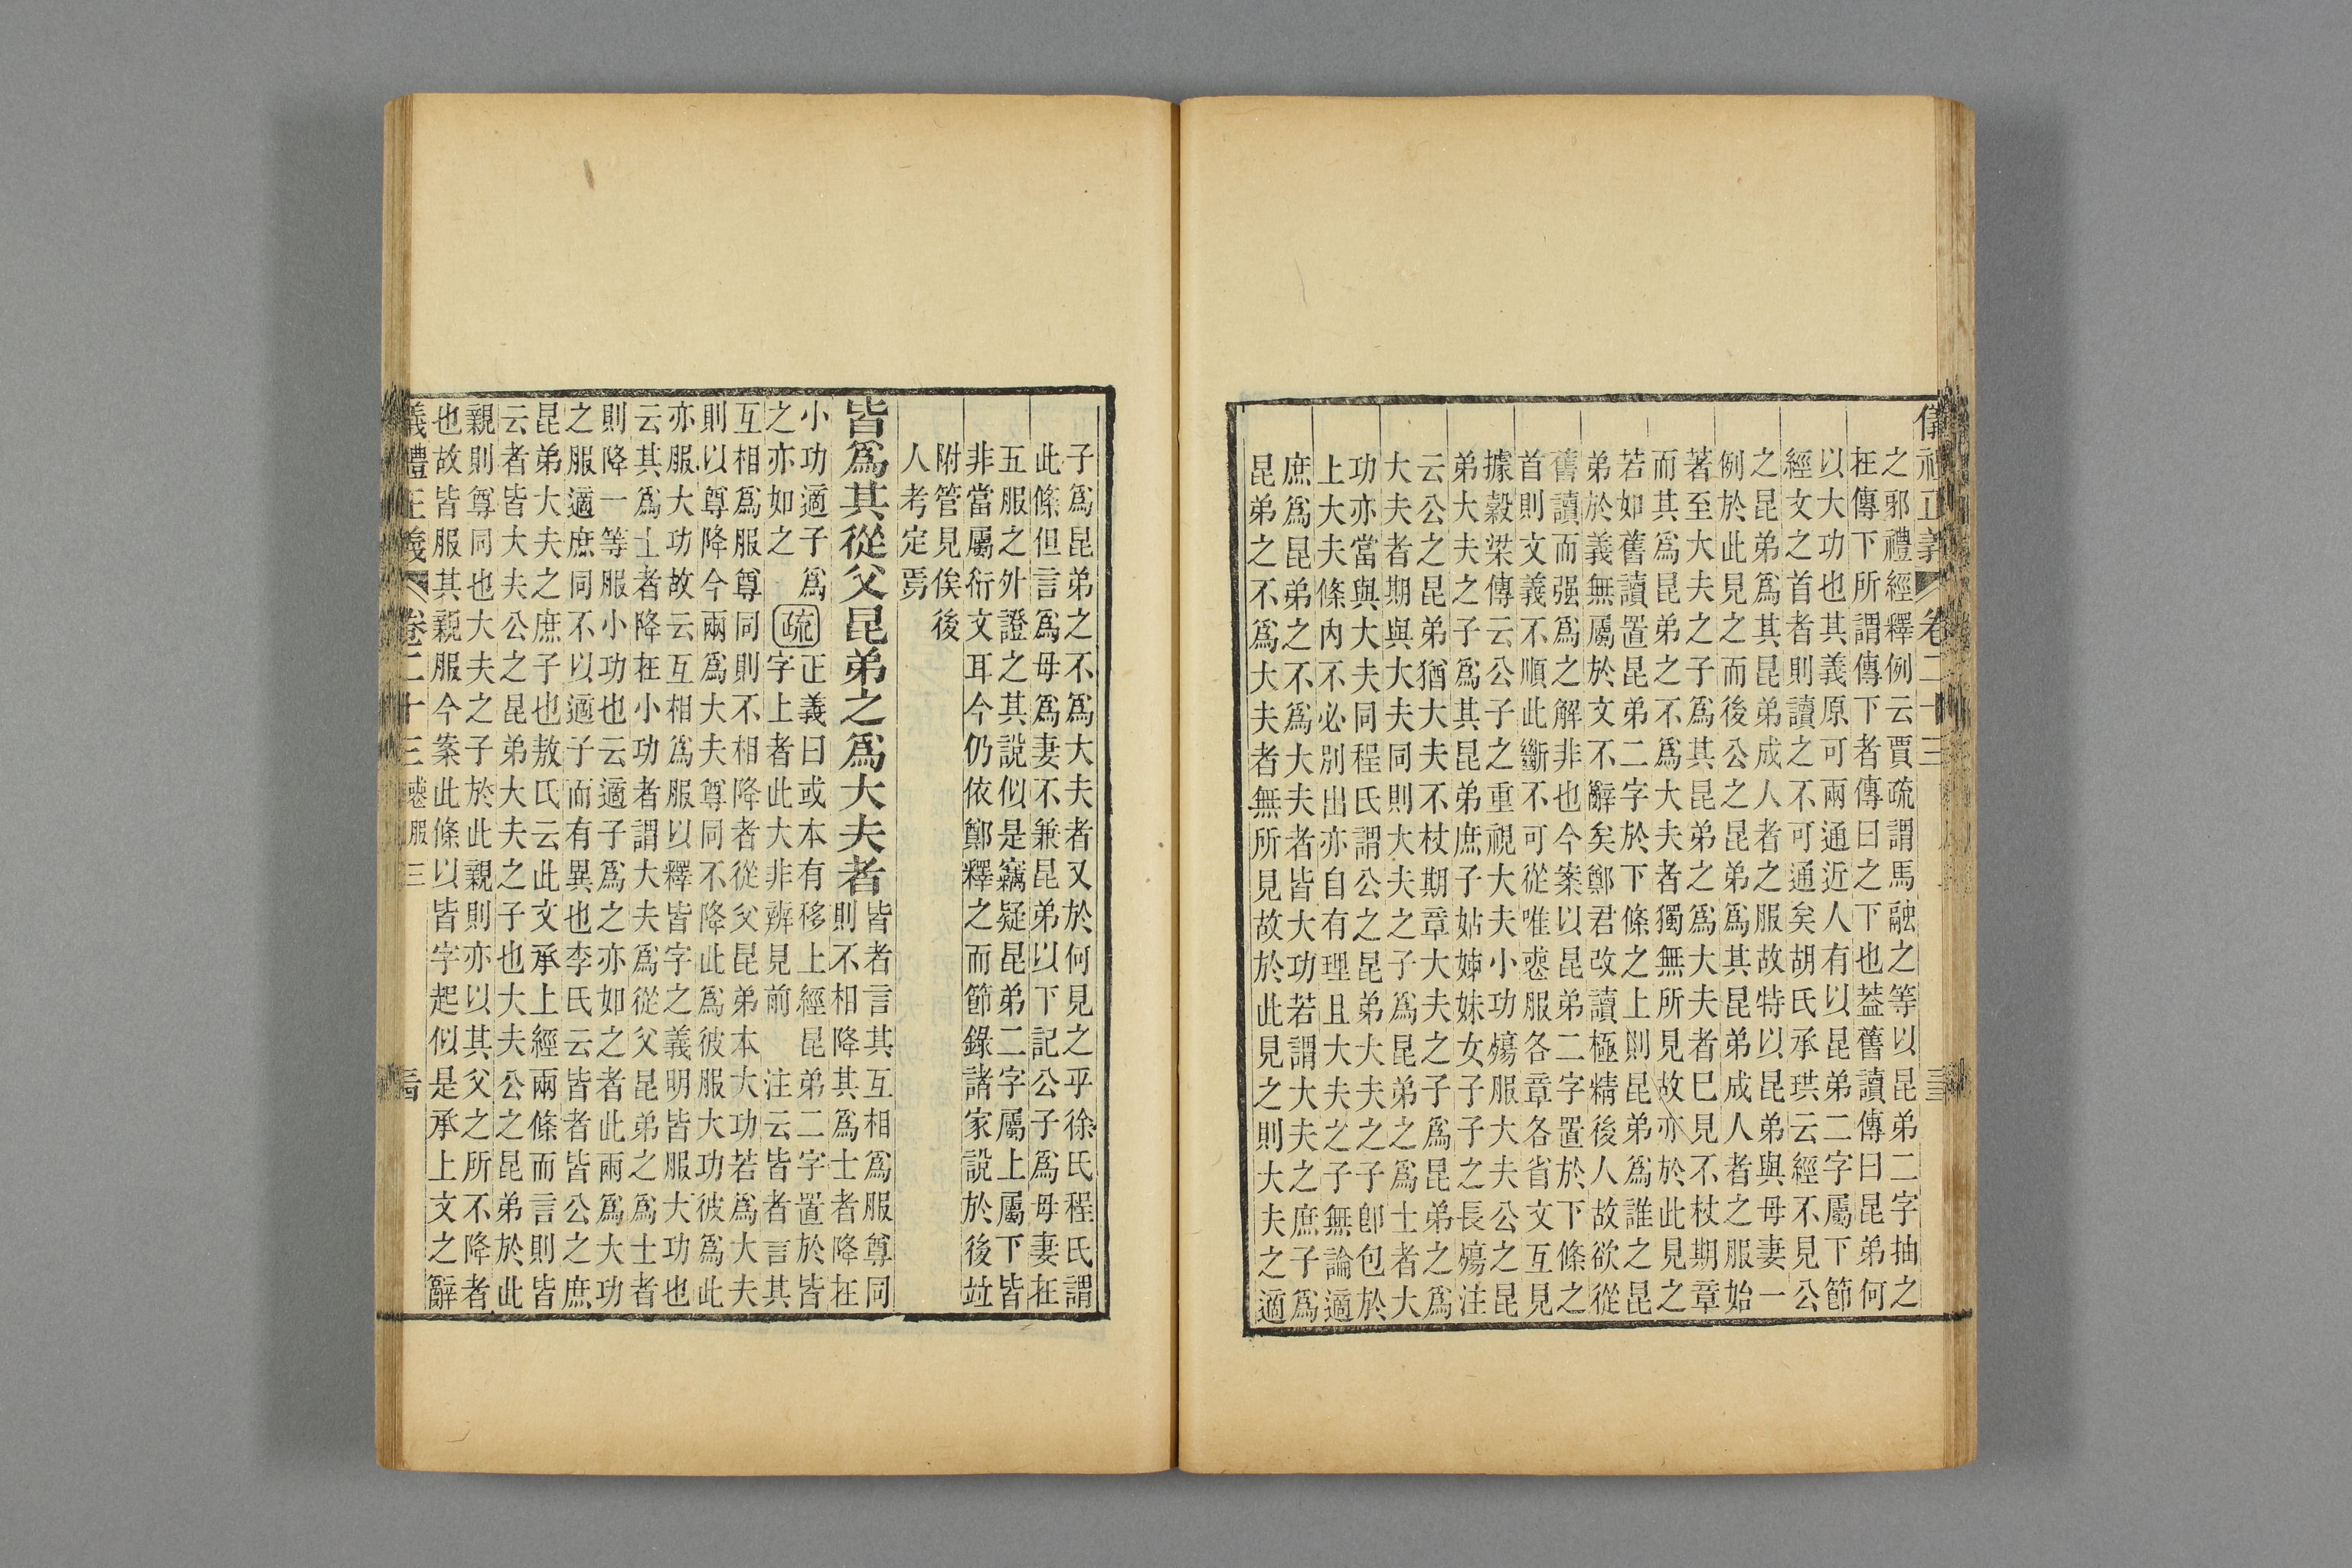 儀禮正義 卷二十三
之郭禮經釋例云賈疏謂馬融之等以昆弟二字抽之
在傳下所謂傳下者傳曰之下也葢舊讀傳曰昆弟何
以大功也其義原可兩通近人有以昆弟二字屬下節
經文之首者則讀之不可通矣胡氏承珙云經不見公
之昆弟爲其昆弟成人者之服故特以昆弟與母妻一
例於此見之而後公之昆弟爲其昆弟成人者之服始
著至大夫之子爲其昆弟之爲大夫者巳見不杖期章
而其爲昆弟之不爲大夫者獨無所見故亦於此見之
若如舊讀置昆弟二字於下條之上則昆弟爲誰之昆
弟於義無屬於文不辭矣鄭君改讀極精後人故欲從
舊讀而强爲之解非也今案以昆弟二字置於下條之
首則文義不順此斷不可從唯喪服各章各省文互見
據穀梁傳云公子之重視大夫小功殤服大夫公之昆
弟大夫之子爲其昆弟庶子姑姊妹女子子之長殤注
云公之昆弟猶大夫不杖期章大夫之子爲昆弟之爲
大夫者期與大夫同則大夫之子爲昆弟之爲士者大
功亦當與大夫同程氏謂公之昆弟大夫之子卽包於
上大夫條內不必別出亦自有理且大夫之子無論適
庶爲昆弟之不爲大夫者皆大功若謂大夫之庶子爲
昆弟之不爲大夫者無所見故於此見之則大夫之適
子爲昆弟之不爲大夫者又於何見之乎徐氏程氏謂
此條但言爲母爲妻不兼昆弟以下記公子爲母妻在
五服之外證之其說似是竊疑昆弟二字屬上屬下皆
非當屬衍文耳今仍依鄭釋之而節錄諸家說於後竝
附管見俟後
人考定焉
皆爲其從父昆弟之爲大夫者
皆者言其互相爲服尊同
則不相降其爲士者降在
小功適子爲
之亦如之
疏
正義曰或本有移上經昆弟二字置於皆
字上者此大非辨見前 注云皆者言其
互相爲服尊同則不相降者從父昆弟本大功若爲大夫
則以尊降今兩爲大夫尊同不降此爲彼服大功彼爲此
亦服大功故云互相爲服以釋皆字之義明皆服大功也
云其爲士者降在小功者謂大夫爲從父昆弟之爲士者
則降一等服小功也云適子爲之亦如之者此兩爲大功
之服適庶同不以適子而有異也李氏云皆者皆公之庶
昆弟大夫之庶子也敖氏云此文承上經兩條而言則皆
云者皆大夫公之昆弟大夫之子也大夫公之昆弟於此
親則尊同也大夫之子於此親則亦以其父之所不降者
也故皆服其親服今案此條以皆字起似是承上文之辭
儀禮正義 卷二十三 喪服三